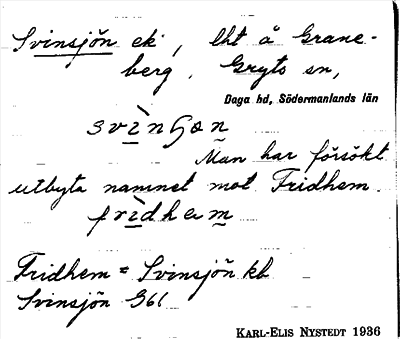 Svinsjön ek, lht å Grane-
berg, Gryts sn,
Daga hd, Södermanlands län
Man har försökt
utbyta namnet mot Fridhem.
Fridhem = Svinsjön kb
Svinsjön G61
KARL-ELIS NYSTEDT 1936